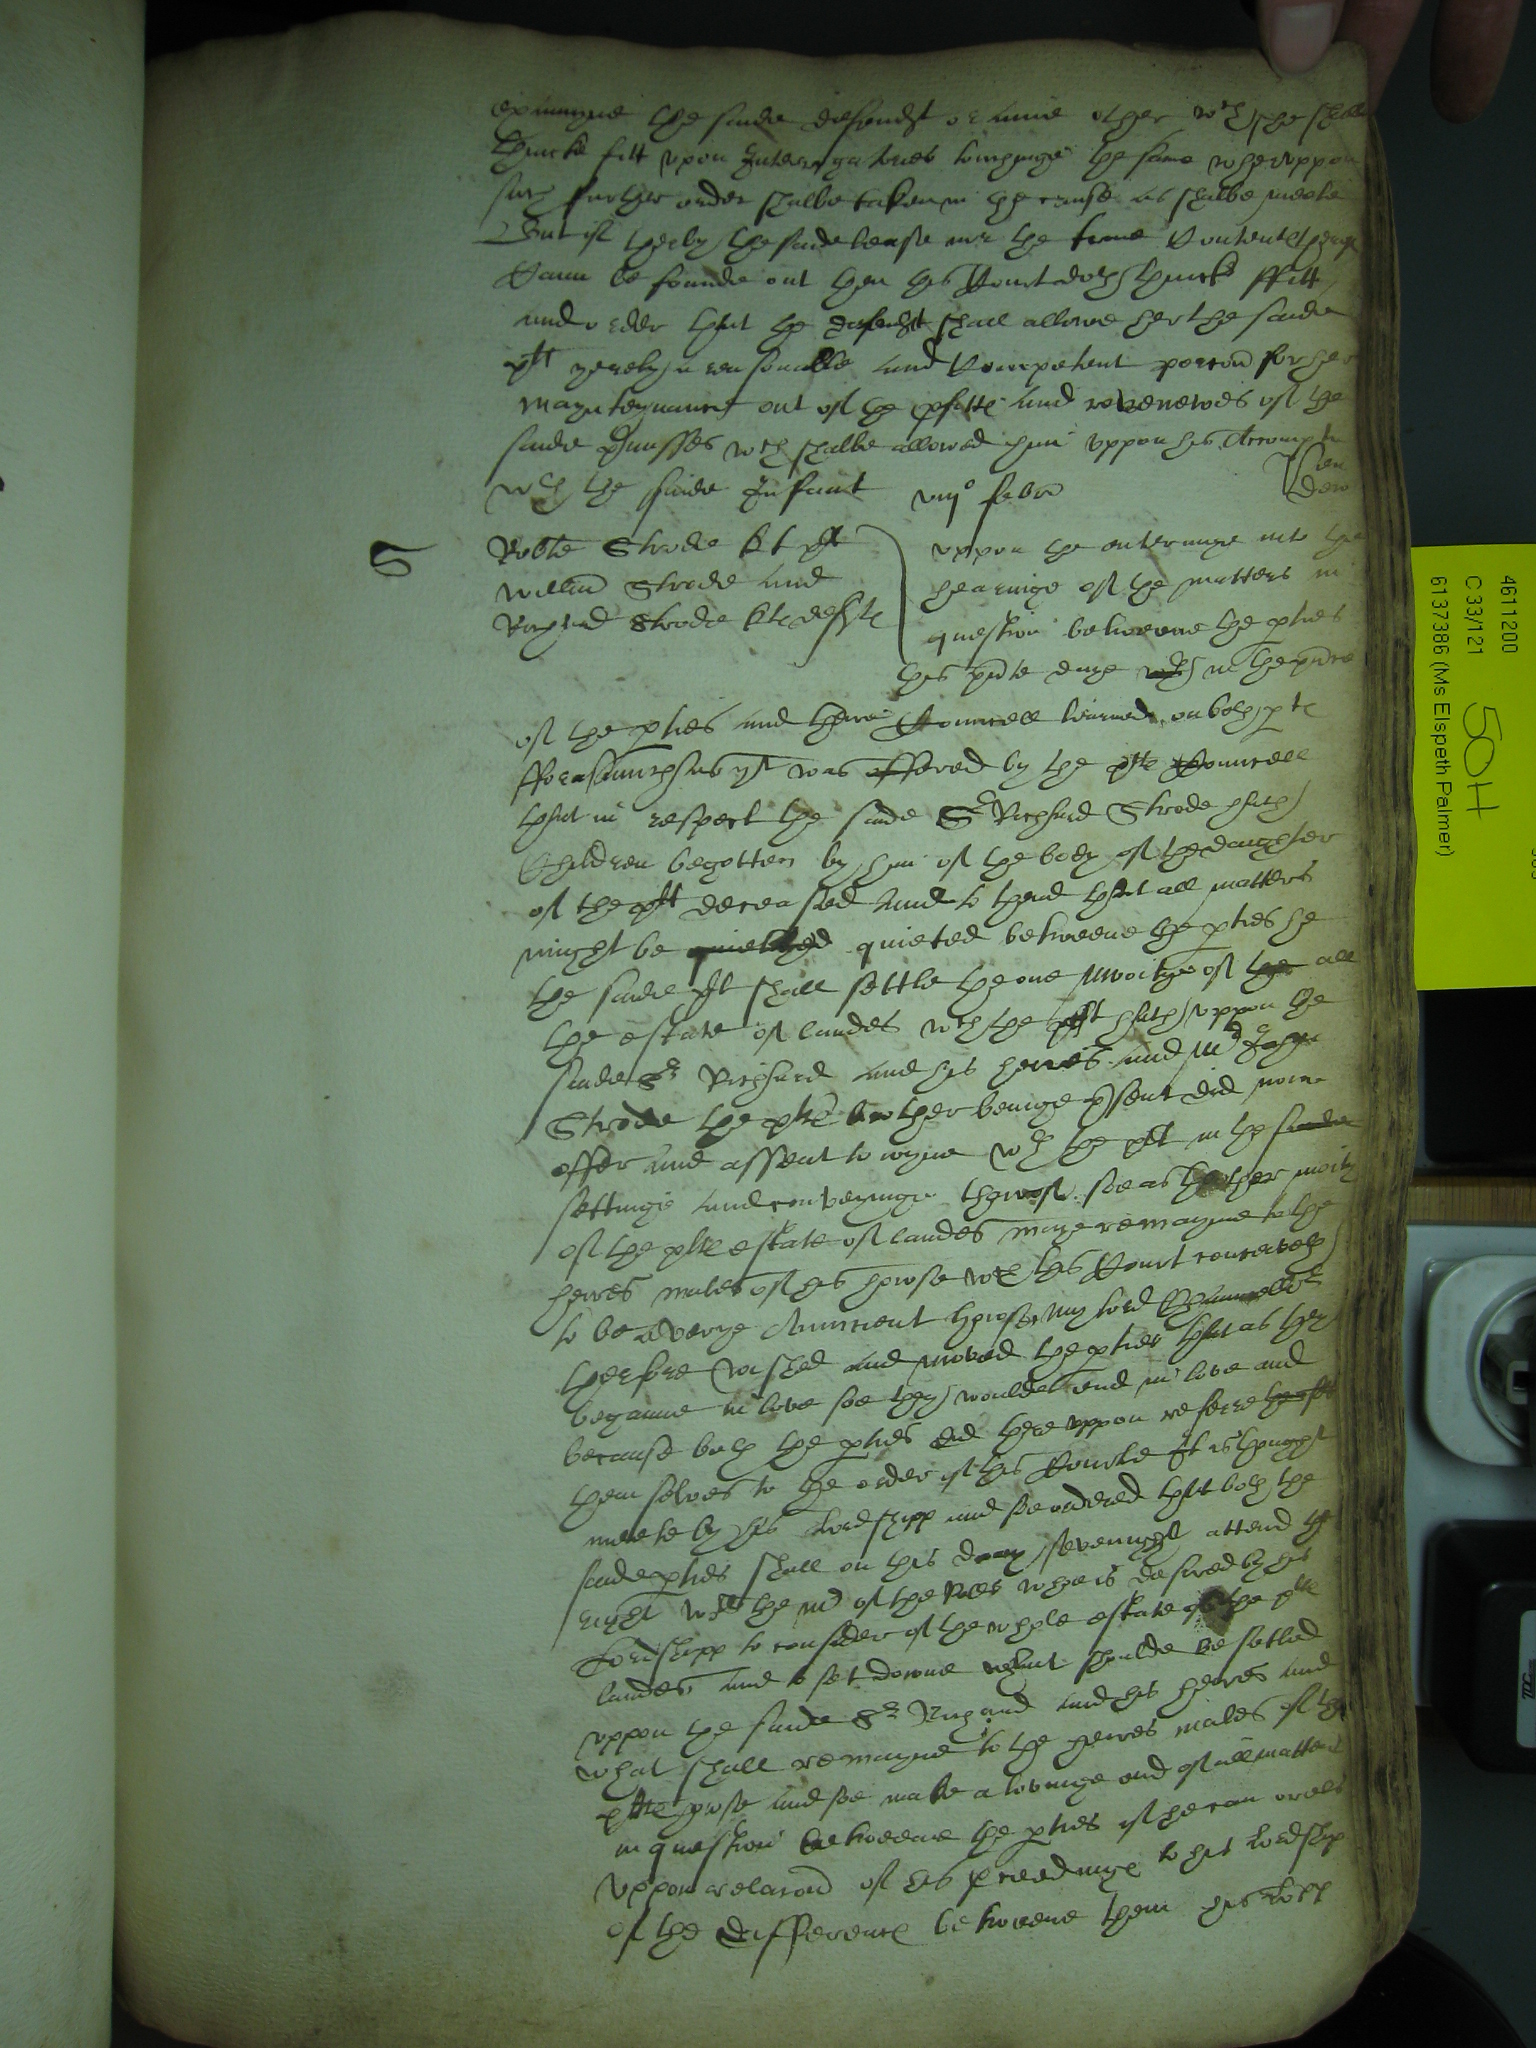 examyne the saide defendt or anie other wch she shall
thincke fitt vpon Interrogatories touchinge the same wherevppon
such further order shalbe taken in the cause as shalbe meete
But if therby the saide lease nor the true Contents therof
Cann be founde out then this Court doth thincke ffitt
and order that the defendt shall allowe her the saide
plt yerely a reasonable and Competent porcon for her
mayntenaunce out of the pfitte and revenewes of the
saide pmisses wch shalbe allowed him vppon his Accompte
wth the saide Infant viijo febr
S
Robte Strode kt plt
Willm Strode and
Richard Strode kte defte
vppon the enteringe into the
hearinge of the matters in
question betweene the pties
this pnte daye in the pnce
of the pties and there Councell learned on both pte
fforasmuch as yt was offered by the plte Councell
that in respect the saide Sr Richard Strode hath
Children begotten by him of the body of the daughter
of the plt deceased and to thend that all matters
might be quieted betweene the pties he
the saide plt shall settle the one Moitye of all
the estate of landes wch the plt hath vppon the
saide Sr Richard and his heires and Mr John
Strode the plte brother beinge psent did nowe
offer and assent to ioyne wth the plt in the
settinge and conveyinge therof soe as thother moity
of the plte estate of landes maye remayne to the
heires males of his howse wch this Court conceaveth
to be a verye Auncient howse, my lord Chauncellor
therfore wished and moved the pties that as they
beganne in love soe they woulde end in love and
because both the pties did here vppon referre
them selves to the order of this Courte It is thought
meete by his lordshipp and so ordered that both the
saide pties shall on this day sevenight attend the
right wor the Mr of the Rolles whoe is desired by his
Lordshipp to consider of the whole estate of the plte
landes and to set downe what shoulde be setled
vppon the saide Sr Richard and his heires and
what shall remayne to the heires males of the
plte howse and soe make a lovinge end of all matters
in question betweene the pties if he can or els
vppon relacon of his pceedinge to his Lordship
of the difference betweene them his Lopp
4611200
C 33/121
6137386 (Ms Elspeth Palmer)
50H